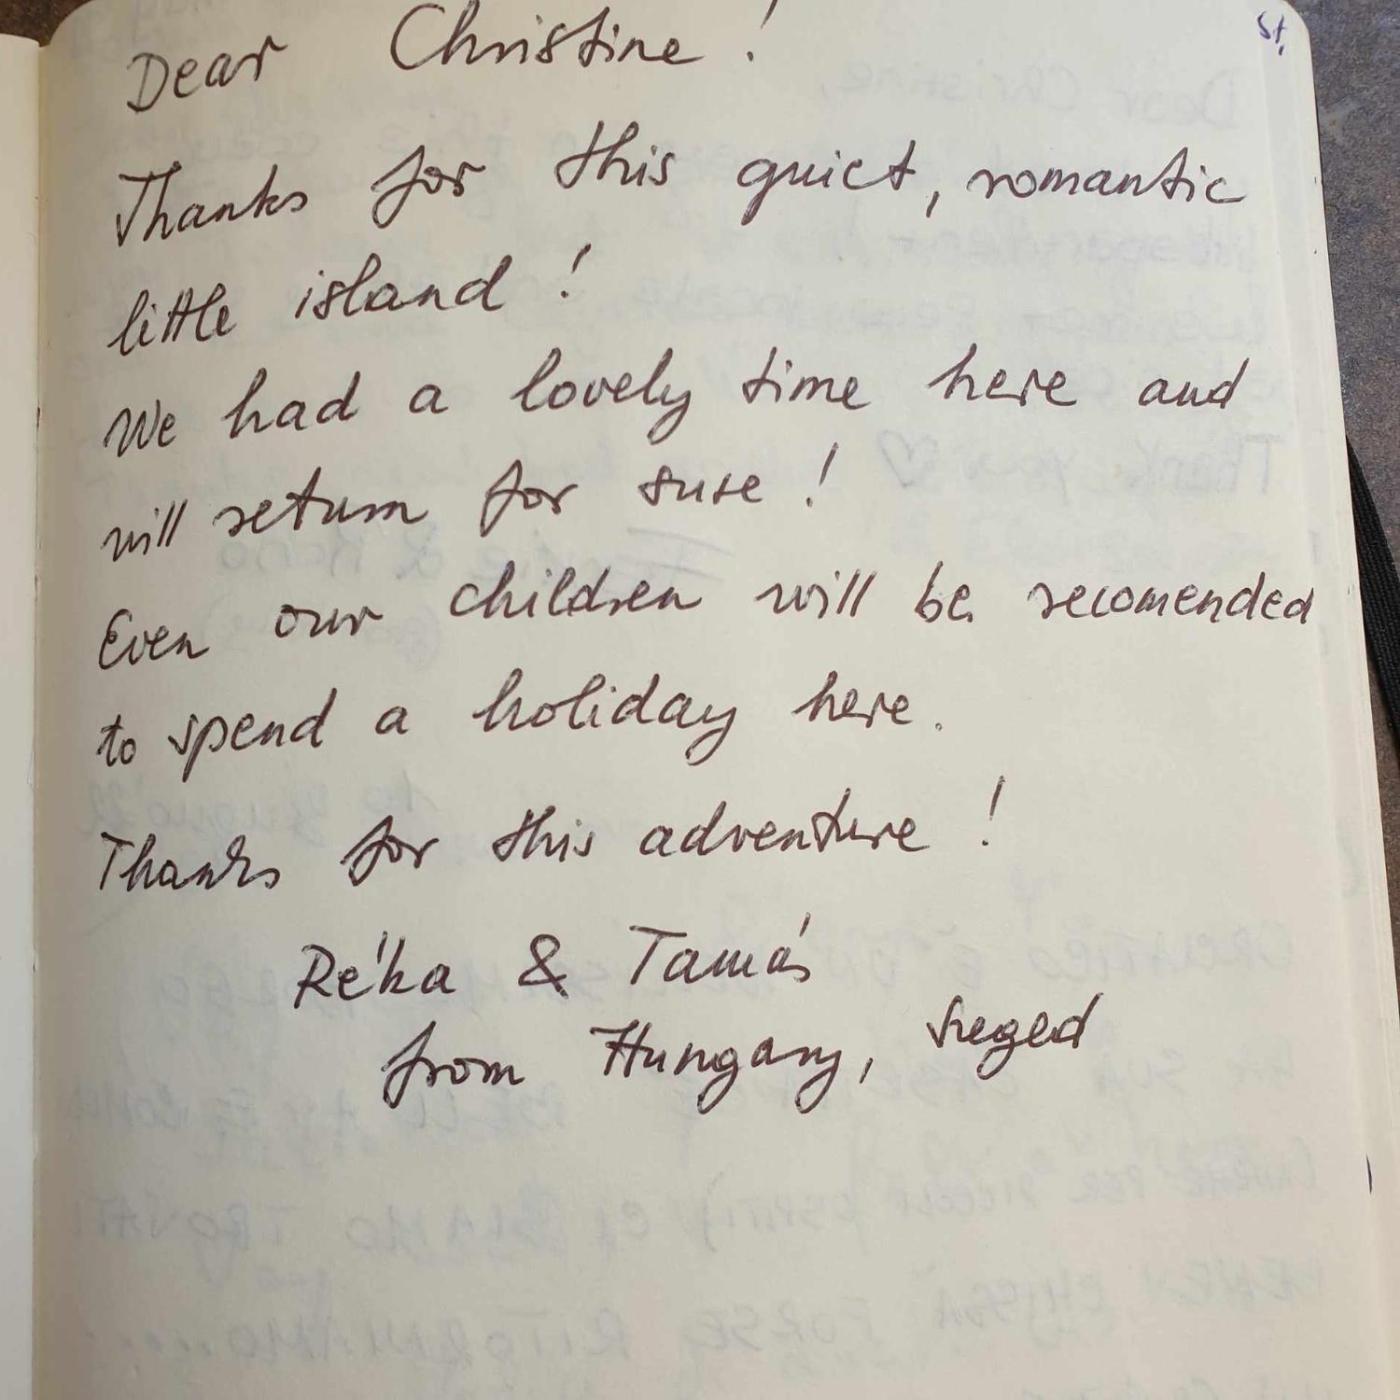 St,
Dear Christine!
Thanks for this quiet, romantic
little island!
We had a lovely time here and
will return for sure!
Even our children will be recomended
to spend a holiday here.
Thanks for this adventure!
Réka & Tamás
from Hungary, Szeged